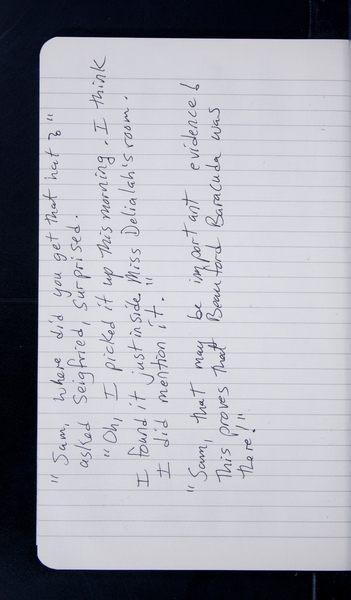 "Sam, where did you get that hat?"
asked Seigfried, surprised.
"Oh, I picked it up this morning. I think
I found it just inside Miss Delialah's room.
I did mention it."
"Sam, that may be important evidence!
This proves that Beauford Baracuda was
there!"